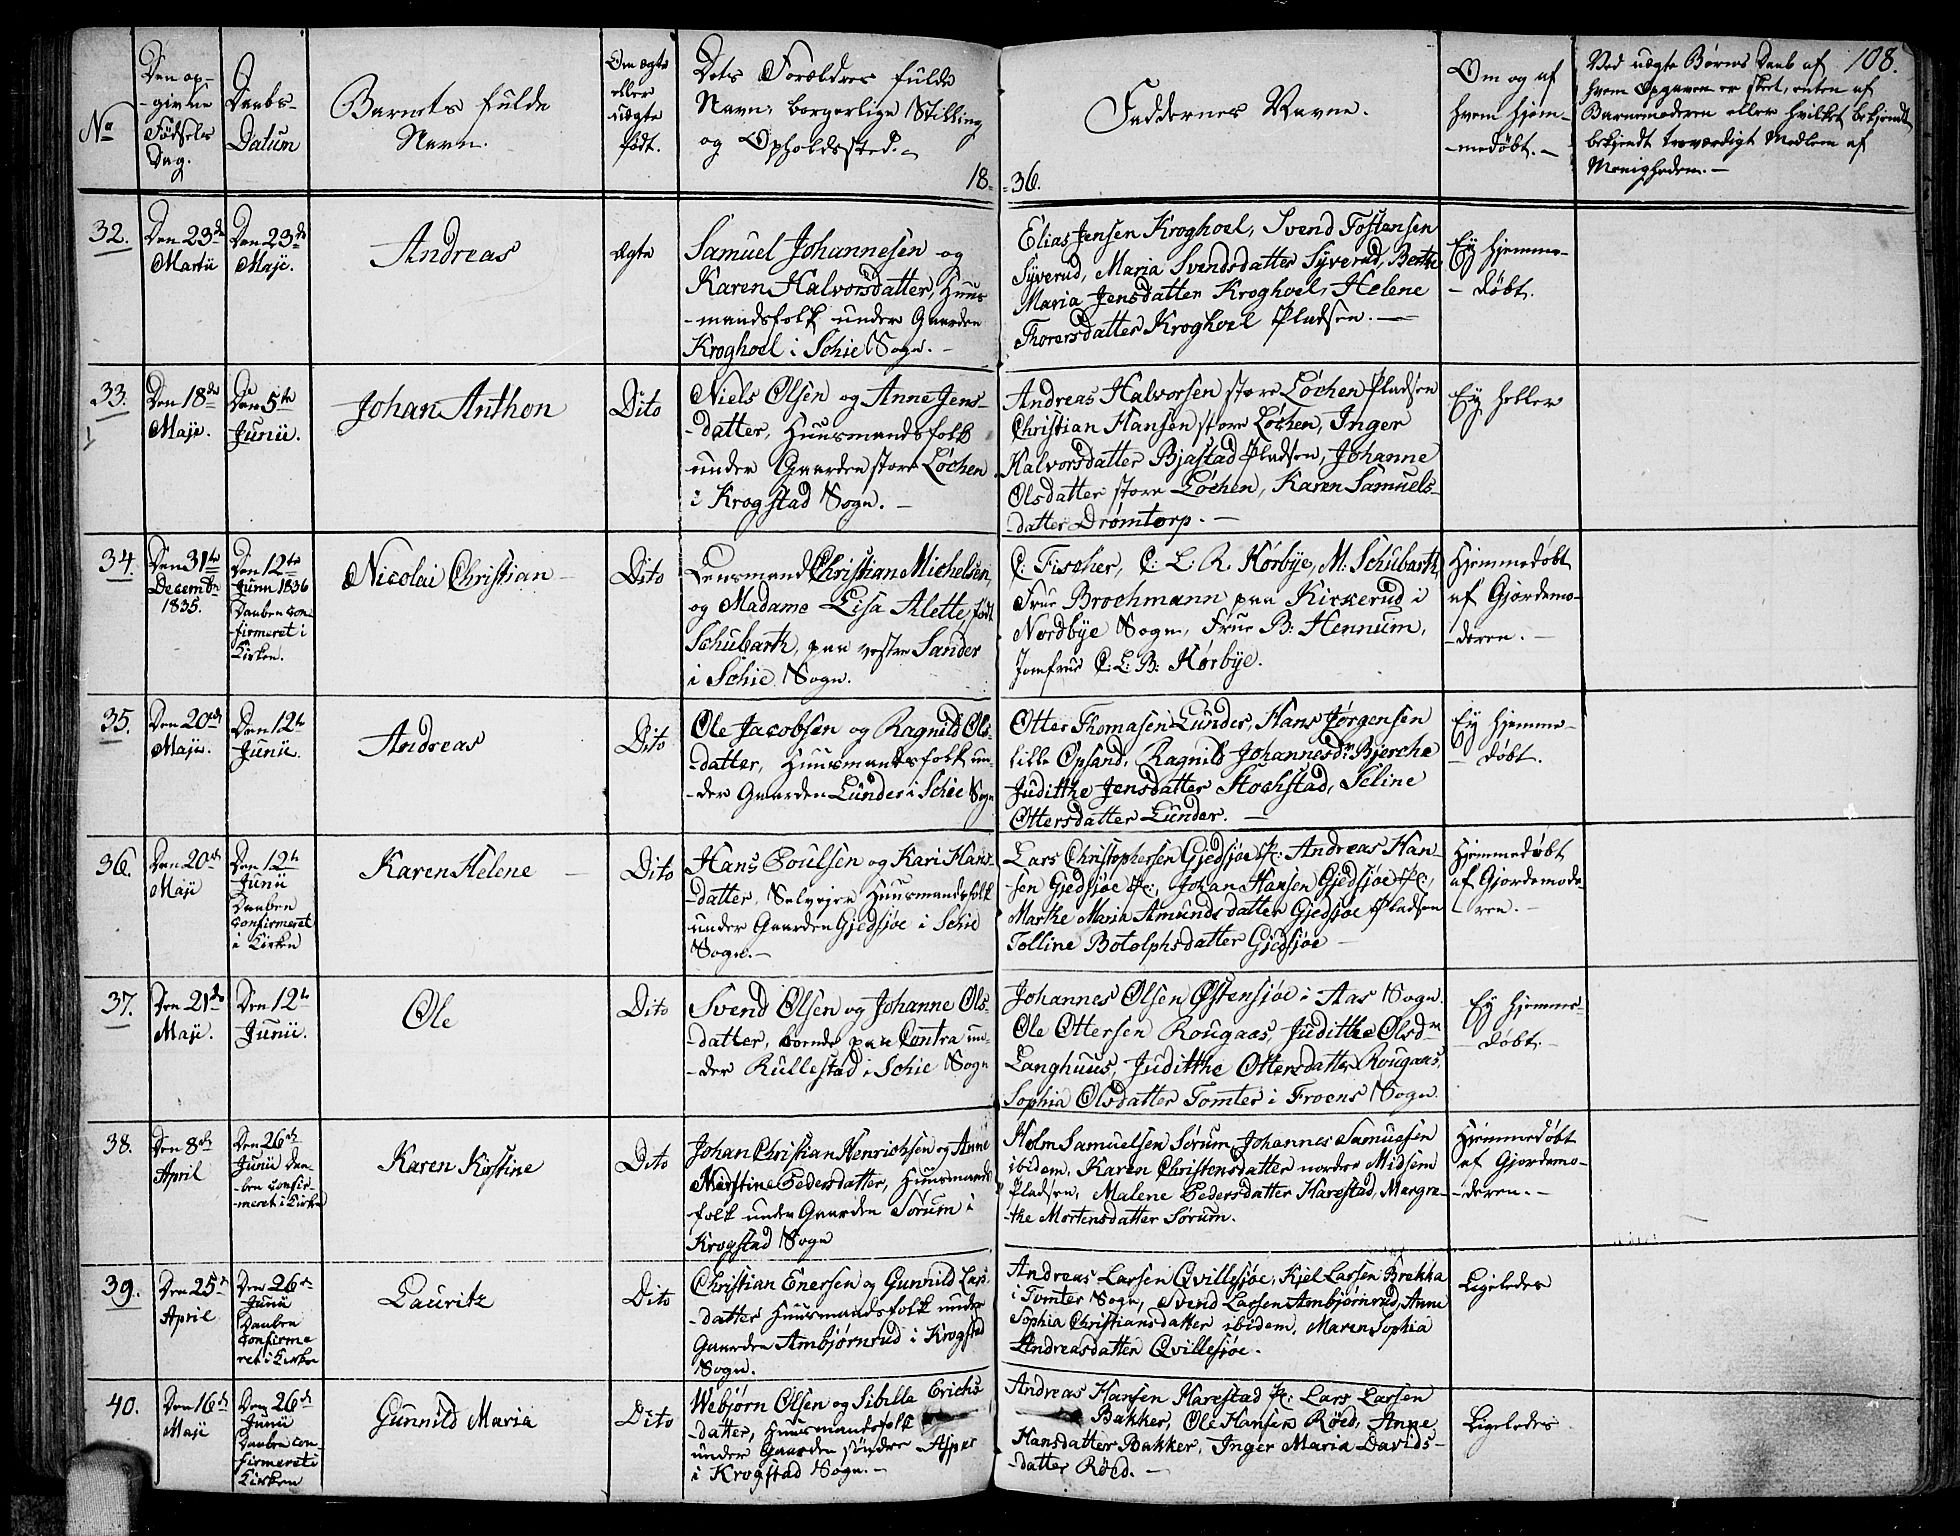 108.
No
Den op-
-givne
Fødsels
Dag.
Daabs-
Datum
Barnets fulde
Navn.
Om ægte
eller
uægte
født.
Dets Forældres fulde
Navn, borgerlige Stilling
og Opholdssted.
Faddernes Navne.
Om og af
hvem hjem-
-medøbt.
Ved uægte Børns Daab af
hvem Opgaven er skeet, enten af
Barnemoderen eller hvilket bekjendt
bekjendt troværdigt Medlem af
Menigheden.
18 - 36.
32.
Den 23de
Martii
Den 23de
Maji.
Andreas
Ægte
Samuel Johannesen og
Karen Halvorsdatter, Huus
-mandsfolk under Gaarden
Kroghoel i Schie Sogn.
Elias Jensen Kroghoel, Svend Tostensen
Syverud, Maria Svendsdatter Syverud, Berthe
Maria Jensdatter Kroghoel, Helene
Thorersdatter Kroghoel Pladsen.
Ej hjemme-
-døbt.
33.
Den 18de
Maji.
Den 5te
Junii.
Johan Anthon
Dito
Niels Olsen og Anne Jens-
-datter, Huusmandsfolk
under Gaarden store Løchen
i Krogstad Sogn.
Andreas Halvorsen store Løchen Pladsen
Christian Hansen store Løchen, Inger
Halvorsdatter Bjastad Pladsen, Johanne
Olsdatter store Løchen, Karen Samuels-
-datter Drømtorp.
Ej heller
34.
Den 31te
Decembr
1835.
Den 12te
Junii 1836
Daaben con-
-firmeret i
Kirken.
Nicolai Christian
Dito
Lensmand Christian Michelsen,
og Madame Lisa Alette, født
Schubarth, paa vestre Sander
i Schie Sogn.
C: Fischer, C: L: R. Kørbye, M: Schubarth,
Frue Brochmann paa Kirkerud i
Nordbye Sogn, Frue B: Hennum,
Jomfrue C: L: B: Kørbye.
Hjemmedøbt
af Gjordemo-
-deren.
35.
Den 20de
Maji.
Den 12te
Junii.
Andreas
Dito
Ole Jacobsen og Ragnild Ols-
-datter, Huusmandsfolk un-
-der Gaarden Lunder i Schie Sogn
Otter Thomasen Lunder, Hans Jørgensen
lille Opsand, Ragnild Johannesdr Bjerche
Judithe Jensdatter Stochstad, Seline
Ottersdatter Lunder.
Ej hjemme-
-døbt.
36.
Den 20de
Maji
Den 12te
Junii
Daaben
confirmeret
i Kirken
Karen Helene
Dito
Hans Poulsen og Kari Hans-
-datter, Selvejer Huusmandsfolk
under Gaarden Gjedsjøe i Schie
Sogn.
Lars Christophersen Gjedsjøe Pl: Andreas Han-
-sen Gjedsjøe Pl:, Johan Hansen Gjedsjøe Pl:,
Marthe Maria Amundsdatter Gjedsjøe Pladsen
Tolline Botolphsdatter Gjedsjøe
Hjemmedøbt
af Gjordemode-
-ren.
37.
Den 21de
Maji.
Den 12te
Junii.
Ole
Dito
Svend Olsen og Johanne Ols-
-datter, boende paa Contra un-
-der Rullestad i Schie Sogn
Johannes Olsen Østensjøe i Aas Sogn.
Ole Ottersen Rougaas, Judithe Olsdr
Langhuus, Judithe Ottersdatter Rougaas,
Sophia Olsdatter Tomter i Froens Sogn.
Ej hjemme-
-døbt.
38.
Den 8de
April
Den 26de
Junii Daa-
-ben confir-
-meret i Kirken
Karen Kirstine
Dito
Johan Christian Henrichsen og Anne
Kirstine Pedersdatter, Huusmands
-folk under Gaarden Sørum i
Krogstad Sogn
Holm Samuelsen Sørum, Johannes Samuelsen
ibidem, Karen Christensdatter nordre Midsem
Pladsen, Malene Pedersdatter Harestad, Margre-
-the Mortensdatter Sørum.
Hjemmedøbt
af Gjordemo-
-deren.
39.
Den 25de
April
Den 26de
Junii
Daaben
confirme
ret i Kirken
Lauritz
Dito
Christian Enersen og Gunnild Lars-
-datter Huusmandsfolk under
Gaarden Ambjørnrud i Krogstad
Sogn.
Andreas Larsen Qvillesjøe, Kjel Larsen Brekka
i Tomter Sogn, Svend Larsen Ambjørnrud, Anne
Sophia Christiansdatter ibidem, Maren Sophia
Andreasdatter Qvillesjøe.
Ligeledes
40.
Den 16de
Maji
Den 26de
Junii
Daaben con-
-firmeret i
Kirken
Gunnild Maria
Dito
Webjørn Olsen og Sibilla Erichs
-datter, Huusmandsfolk
under Gaarden søndre Asper
i Krogstad Sogn.
Andreas Hansen Harestad Pl: Lars Larsen
Bakker, Ole Hansen Røed, Anne
Hansdatter Bakker, Inger Maria Davids-
-datter Røed.
Ligeledes